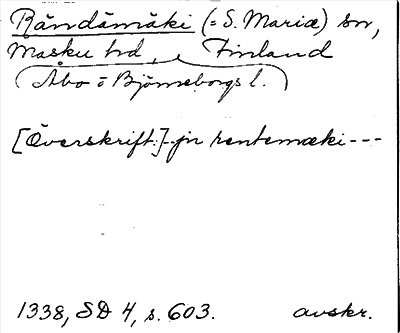 Rändämäki (= S. Mariæ) sn,
Masku hd, Finland
(Åbo o Björneborgs l.)
[Överskrift:] jn rentemæki ---
1338, SD 4, s. 603. avskr.